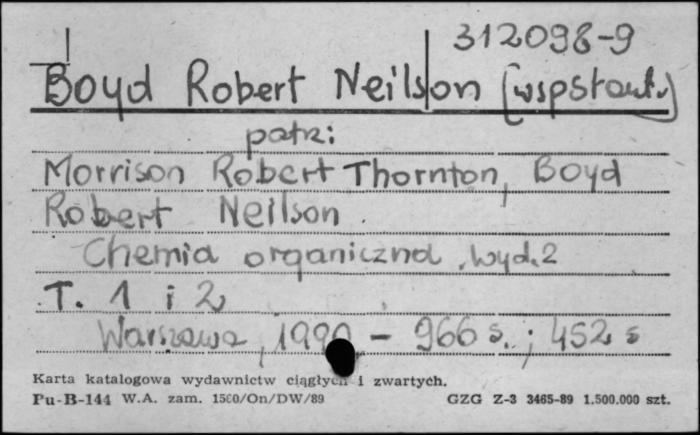 312098-9
Boyd Robert Neilson (współaut.)
patrz:
Morrison Robert Thornton, Boyd
Robert Neilson
Chemia organiczna . wyd. 2
T. 1 i 2
Warszawa, 1990 - 966 s. ; 452 s
Karta katalogowa wydawnictw ciągłych i zwartych.
Pu-B-144 W.A. zam. 1560/On/DW/89 GZG Z-3 3465-89 1.500.000 szt.